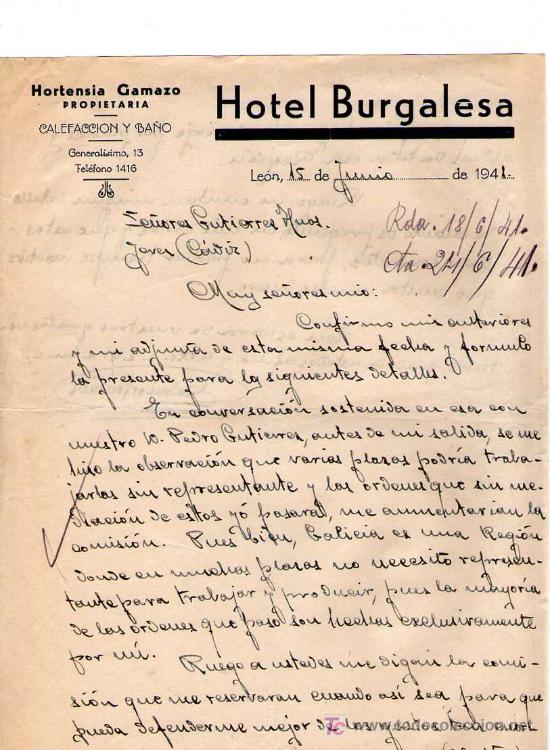 Hortensia Gamazo
PROPIETARIA
CALEFACCION Y BAÑO
Generalísimo, 13
Teléfono 1416
Hotel Burgalesa
León, 15 de Junio de 1941.
Señores Gutierres Hnos.
Jeres (Cádiz)
Rda. 18/6/41.
Cta. 24/6/41.
Muy señores mio:
Confirmo mis anteriores
y mi adjunta de esta misma fecha y formulo
la presente para los siguientes detalles.
En conversación sostenida en esa con
nuestro D. Pedro Gutierres, antes de mi salida, se me
hizo la observación que varias plazas podría traba-
jarlas sin representante y las órdenes que sin me-
diación de estos yo pasara, me aumentarian la
comisión. Pues bien, Galicia es una Región
donde en muchas plazas no necesito represen-
tante para trabajar y producir, pues la mayoría
de las órdenes que paso son hechas exclusivamente
por mí.
Ruego a ustedes me digan la comi-
sión que me reservaran cuando así sea para que
pueda defenderme mejor de los gastos tan
TC www.todocoleccion.net